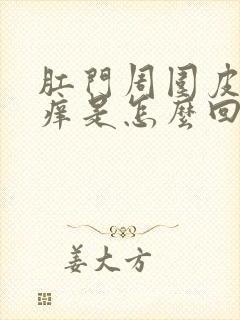 肛門周圍皮
痒是怎麼回
姜大方